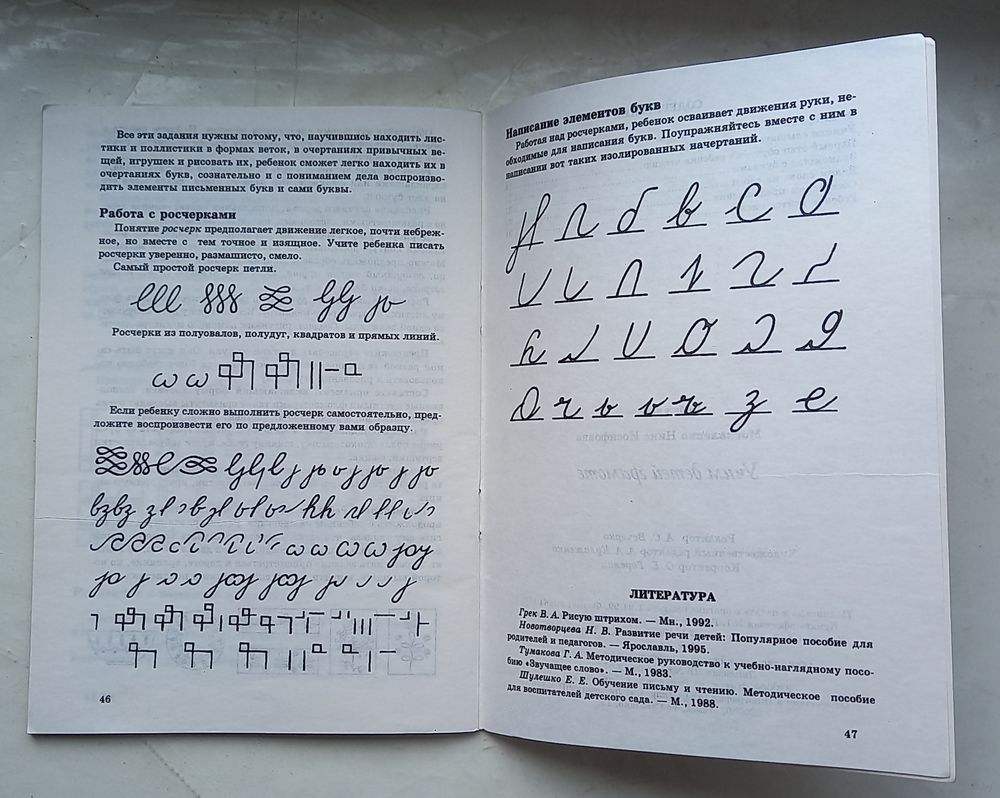 Все эти задания нужны потому, что, научившись находить лис-
тики и поллистики в формах веток, в очертаниях привычных ве-
щей, игрушек и рисовать их, ребенок сможет легко находить их в
очертаниях букв, сознательно и с пониманием дела воспроизво-
дить элементы письменных букв и сами буквы.
Работа с росчерками
Понятие росчерк предполагает движение легкое, почти небреж-
ное, но вместе с тем точное и изящное. Учите ребенка писать
росчерки уверенно, размашисто, смело.
Самый простой росчерк петли.
Росчерки из полуовалов, полудуг, квадратов и прямых линий.
Если ребенку сложно выполнить росчерк самостоятельно, пред-
ложите воспроизвести его по предложенному вами образцу.
46
Написание элементов букв
Работая над росчерками, ребенок осваивает движения руки, не-
обходимые для написания букв. Поупражняйтесь вместе с ним в
написании вот таких изолированных начертаний.
ЛИТЕРАТУРА
Грек В. А. Рисую штрихом. — Мн., 1992.
Новотворцева Н. В. Развитие речи детей: Популярное пособие для
родителей и педагогов. — Ярославль, 1995.
Тумакова Г. А. Методическое руководство к учебно-наглядному посо-
бию «Звучащее слово». — М., 1983.
Шулешко Е. Е. Обучение письму и чтению. Методическое пособие
для воспитателей детского сада. — М., 1988.
47